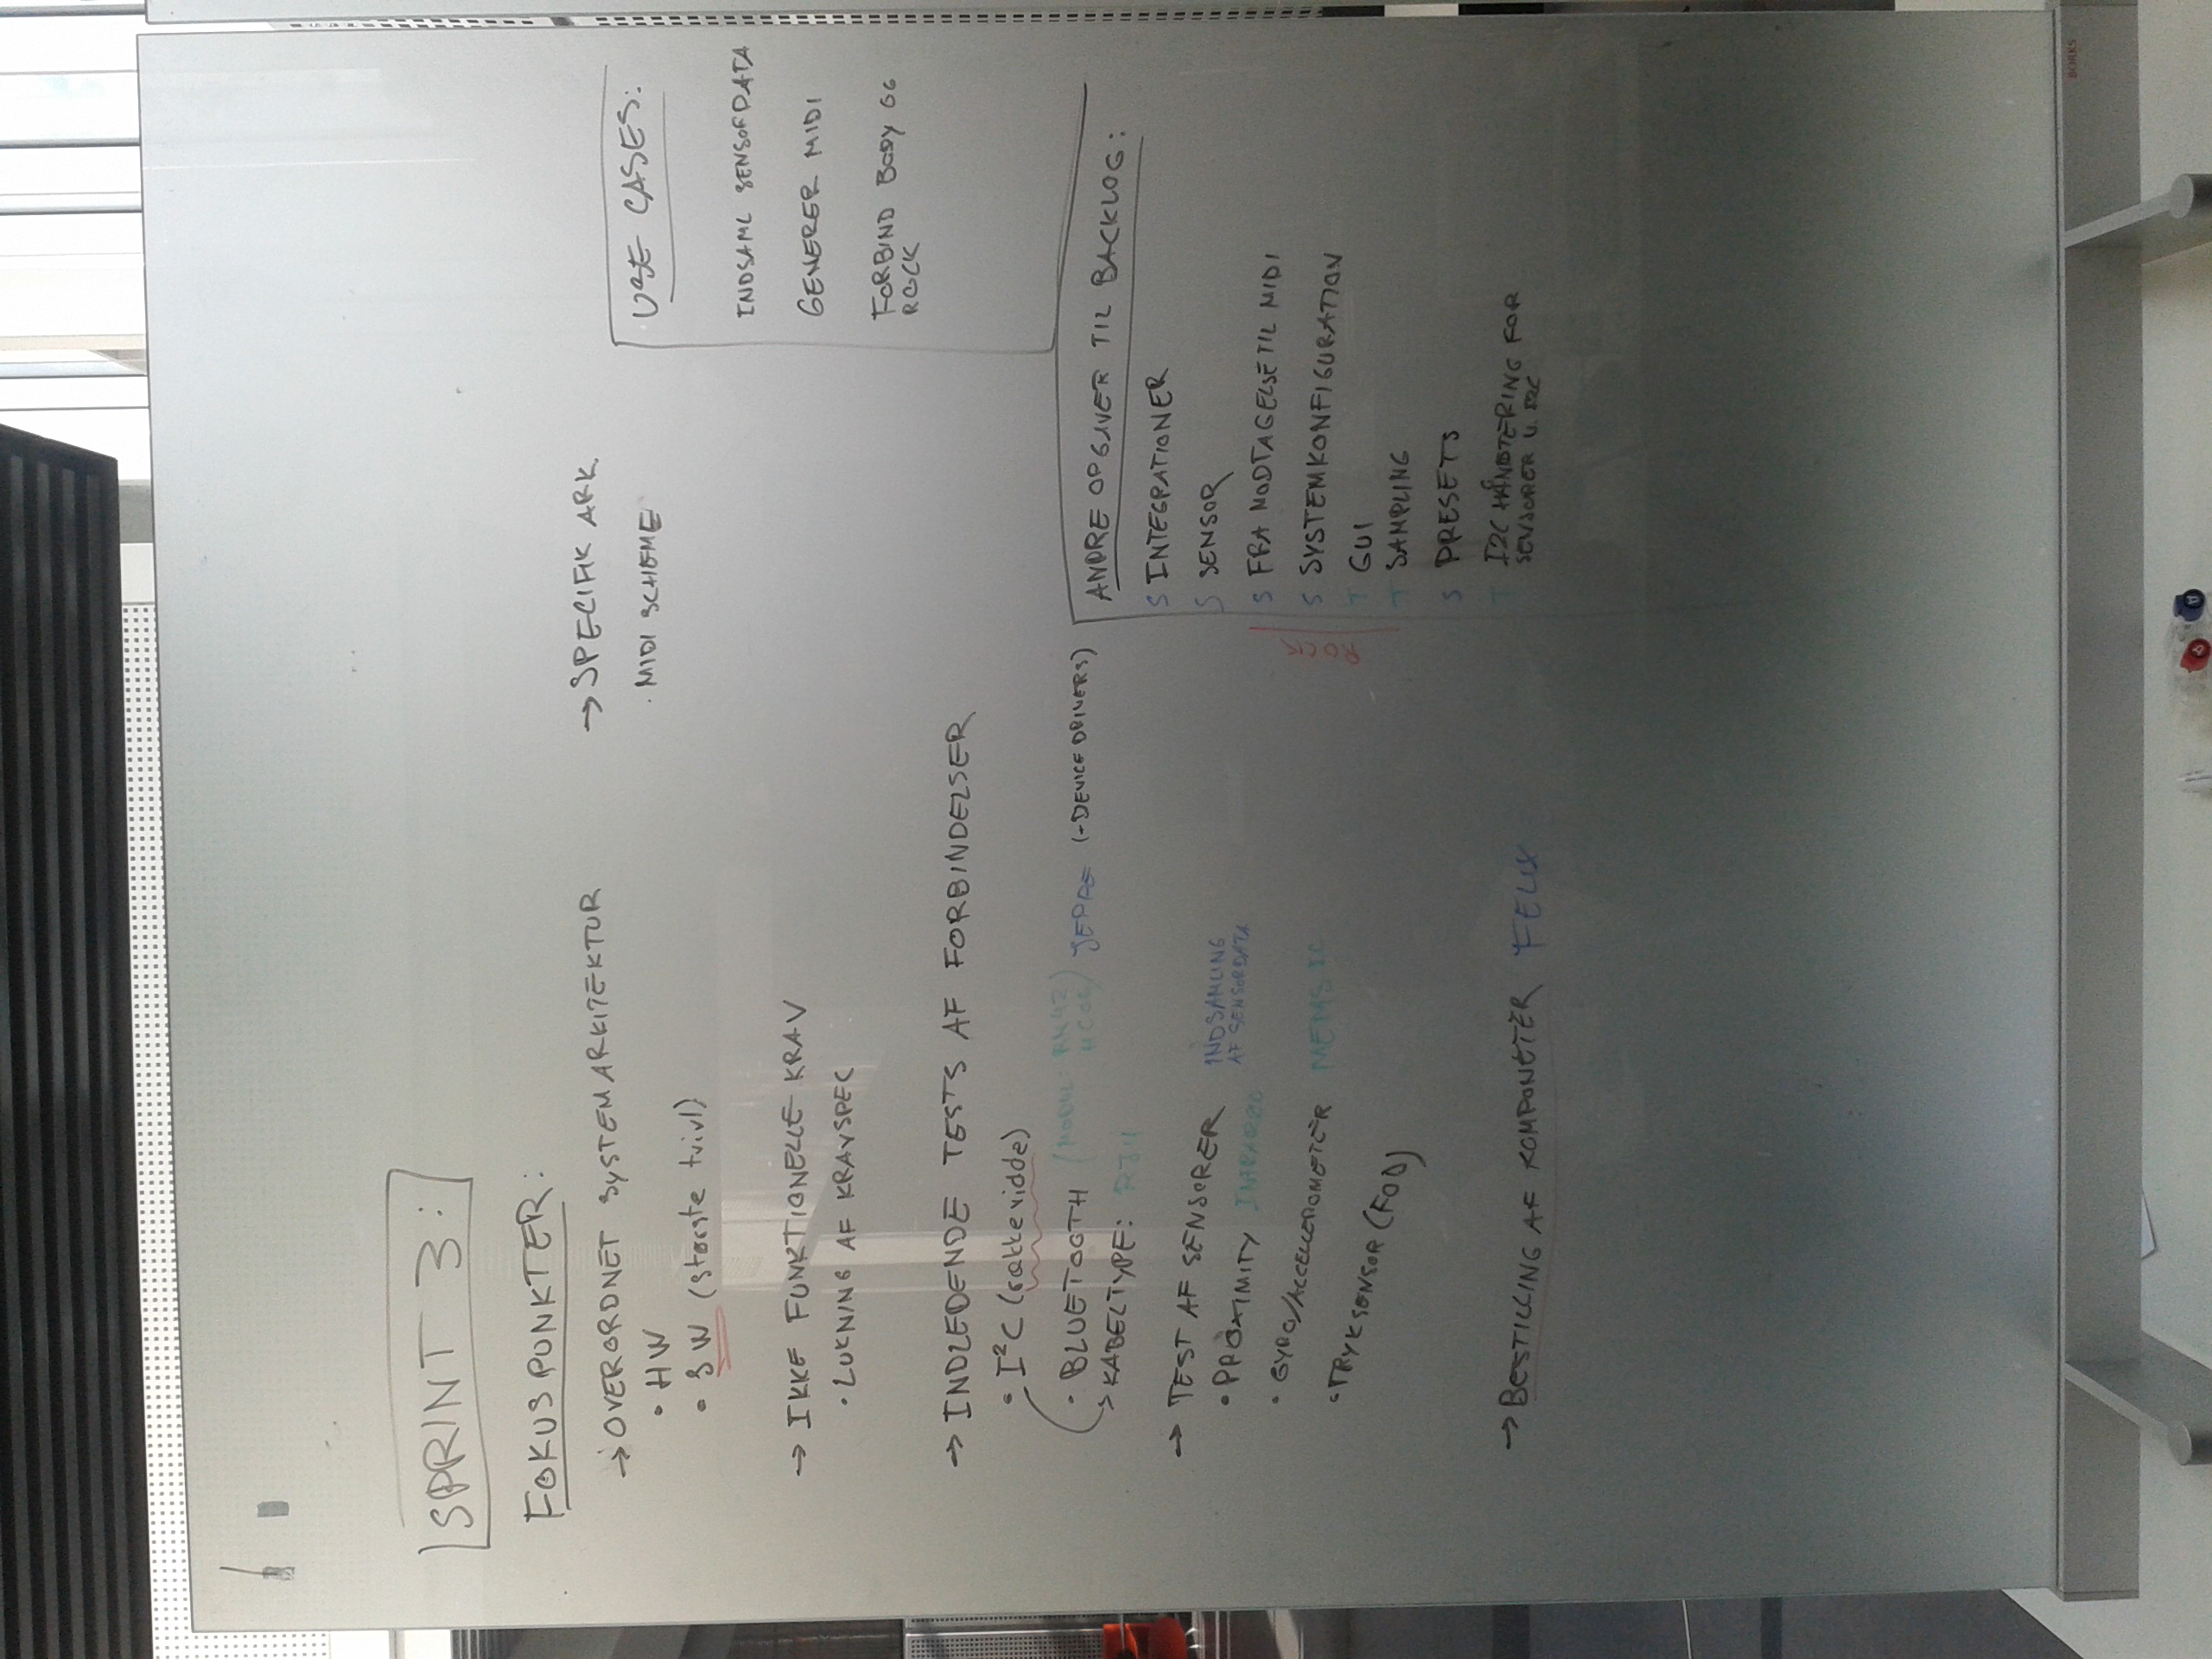 SPRINT 3:
FOKUSPUNKTER:
→ OVERORDNET SYSTEMARKITEKTUR
• HW
• SW (største tvivl)
→ IKKE FUNKTIONELLE KRAV
• LUKNING AF KRAVSPEC
→ INDLEDENDE TESTS AF FORBINDELSER
• I²C (rækkevidde)
• BLUETOOTH (MODUL: RN42 HC06) JEPPE (-DEVICE DRIVERS)
→ KABELTYPE: RJ11
→ TEST AF SENSORER
INDSAMLING
AF SENSORDATA
• PROXIMITY INFRARØD
• GYRO/ACCELLEROMETER MEMS IC
• TRYKSENSOR (FOD)
→ BESTILLING AF KOMPONETER FELIX
→ SPECIFIK ARK.
• MIDI SCHEME
USE CASES:
INDSAML SENSORDATA
GENERER MIDI
FORBIND BODY OG
ROCK
ANDRE OPGAVER TIL BACKLOG:
S INTEGRATIONER
S SENSOR
ROCK
S FRA MODTAGELSE TIL MIDI
S SYSTEMKONFIGURATION
T GUI
T SAMPLING
S PRESETS
T I2C HÅNDTERING FOR
SENSORER U. I2C
BORKS